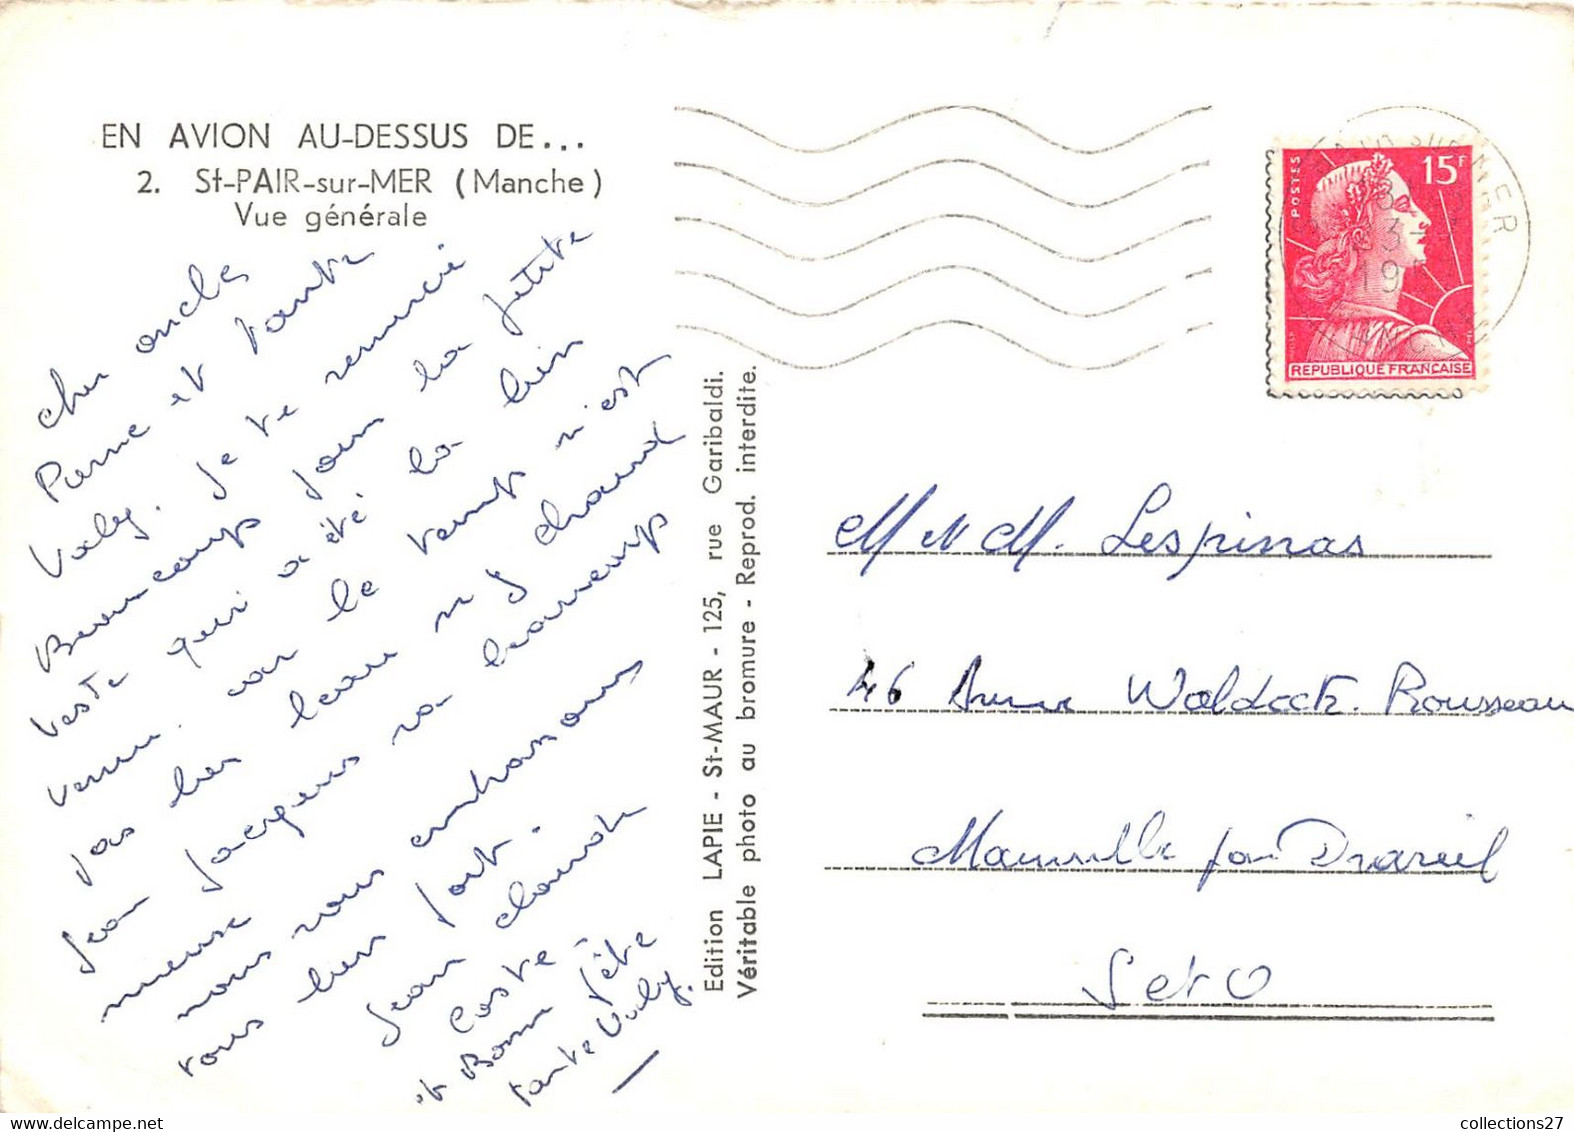 EN AVION AU-DESSUS DE...
2. St-PAIR-sur-MER (Manche)
Vue générale
cher oncle
Pierre et tante
Valy. Je te remercie
Beaucoup pour la petite
veste qui a été la bien
venu. car le temps n'est
pas bien beau ni chaud
Jean Jacques va beaucoup
mieuse
nous vous embrassons
tous bien fort.
Jean Claude
Coste.
et Bonne fête
tante Valy.
Edition LAPIE - St-MAUR - 125, rue Garibaldi.
Véritable photo au bromure - Reprod. interdite.
POSTES
15F
REPUBLIQUE FRANÇAISE
SUR MER
MANCHE
M et M. Lespinas
46 Avenue Waldeck-Rousseau
Mainville par Draveil
Set O
collections27